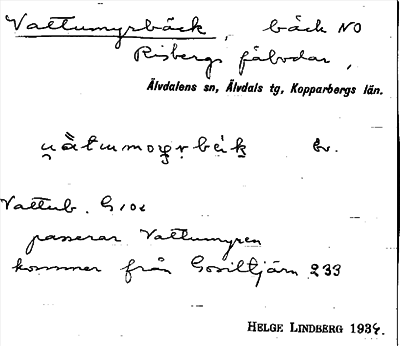 Vattumyrbäck, bäck NO
Risbergs fäbodar,
Älvdalens sn, Älvdals tg, Kopparbergs län.
bv.
Vattub. G 102
passerar Vattumyren
kommer från Gosiltjärn 233
HELGE LINDBERG 1934.